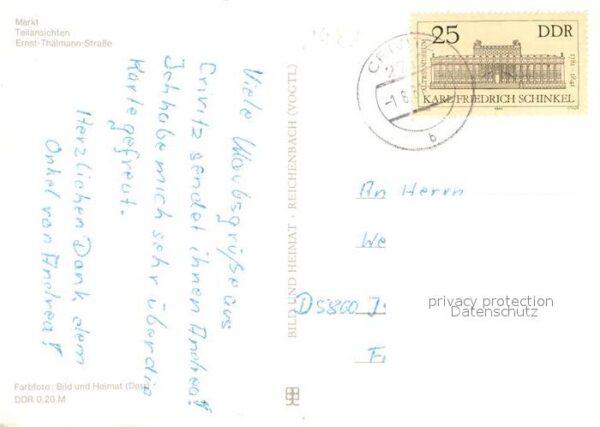 Markt
Teilansichten
Ernst-Thälmann-Straße
Viele Urlaubsgrüße aus
Crivitz sendet ihnen Andrea!
Ich habe mich sehr über die
Karte gefreut.
Herzlichen Dank dem
Onkel von Andrea!
Farbfoto: Bild und Heimat
DDR 0,20 M
BILD UND HEIMAT · REICHENBACH (VOGTL)
25 DDR
ALTES MUSEUM
1781 1841
KARL FRIEDRICH SCHINKEL
-1.8.
b
An Herrn
We
D5860 J
F
privacy protection
Datenschutz